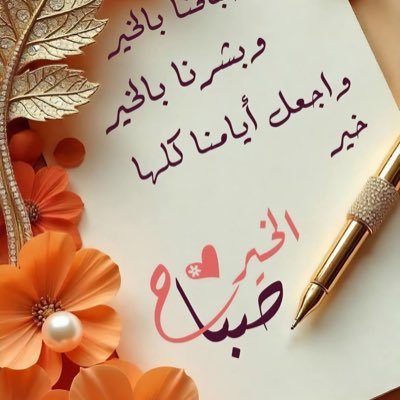 بالخير
وبشرنا بالخير
واجعل أيامنا كلها
خير
صباح الخير